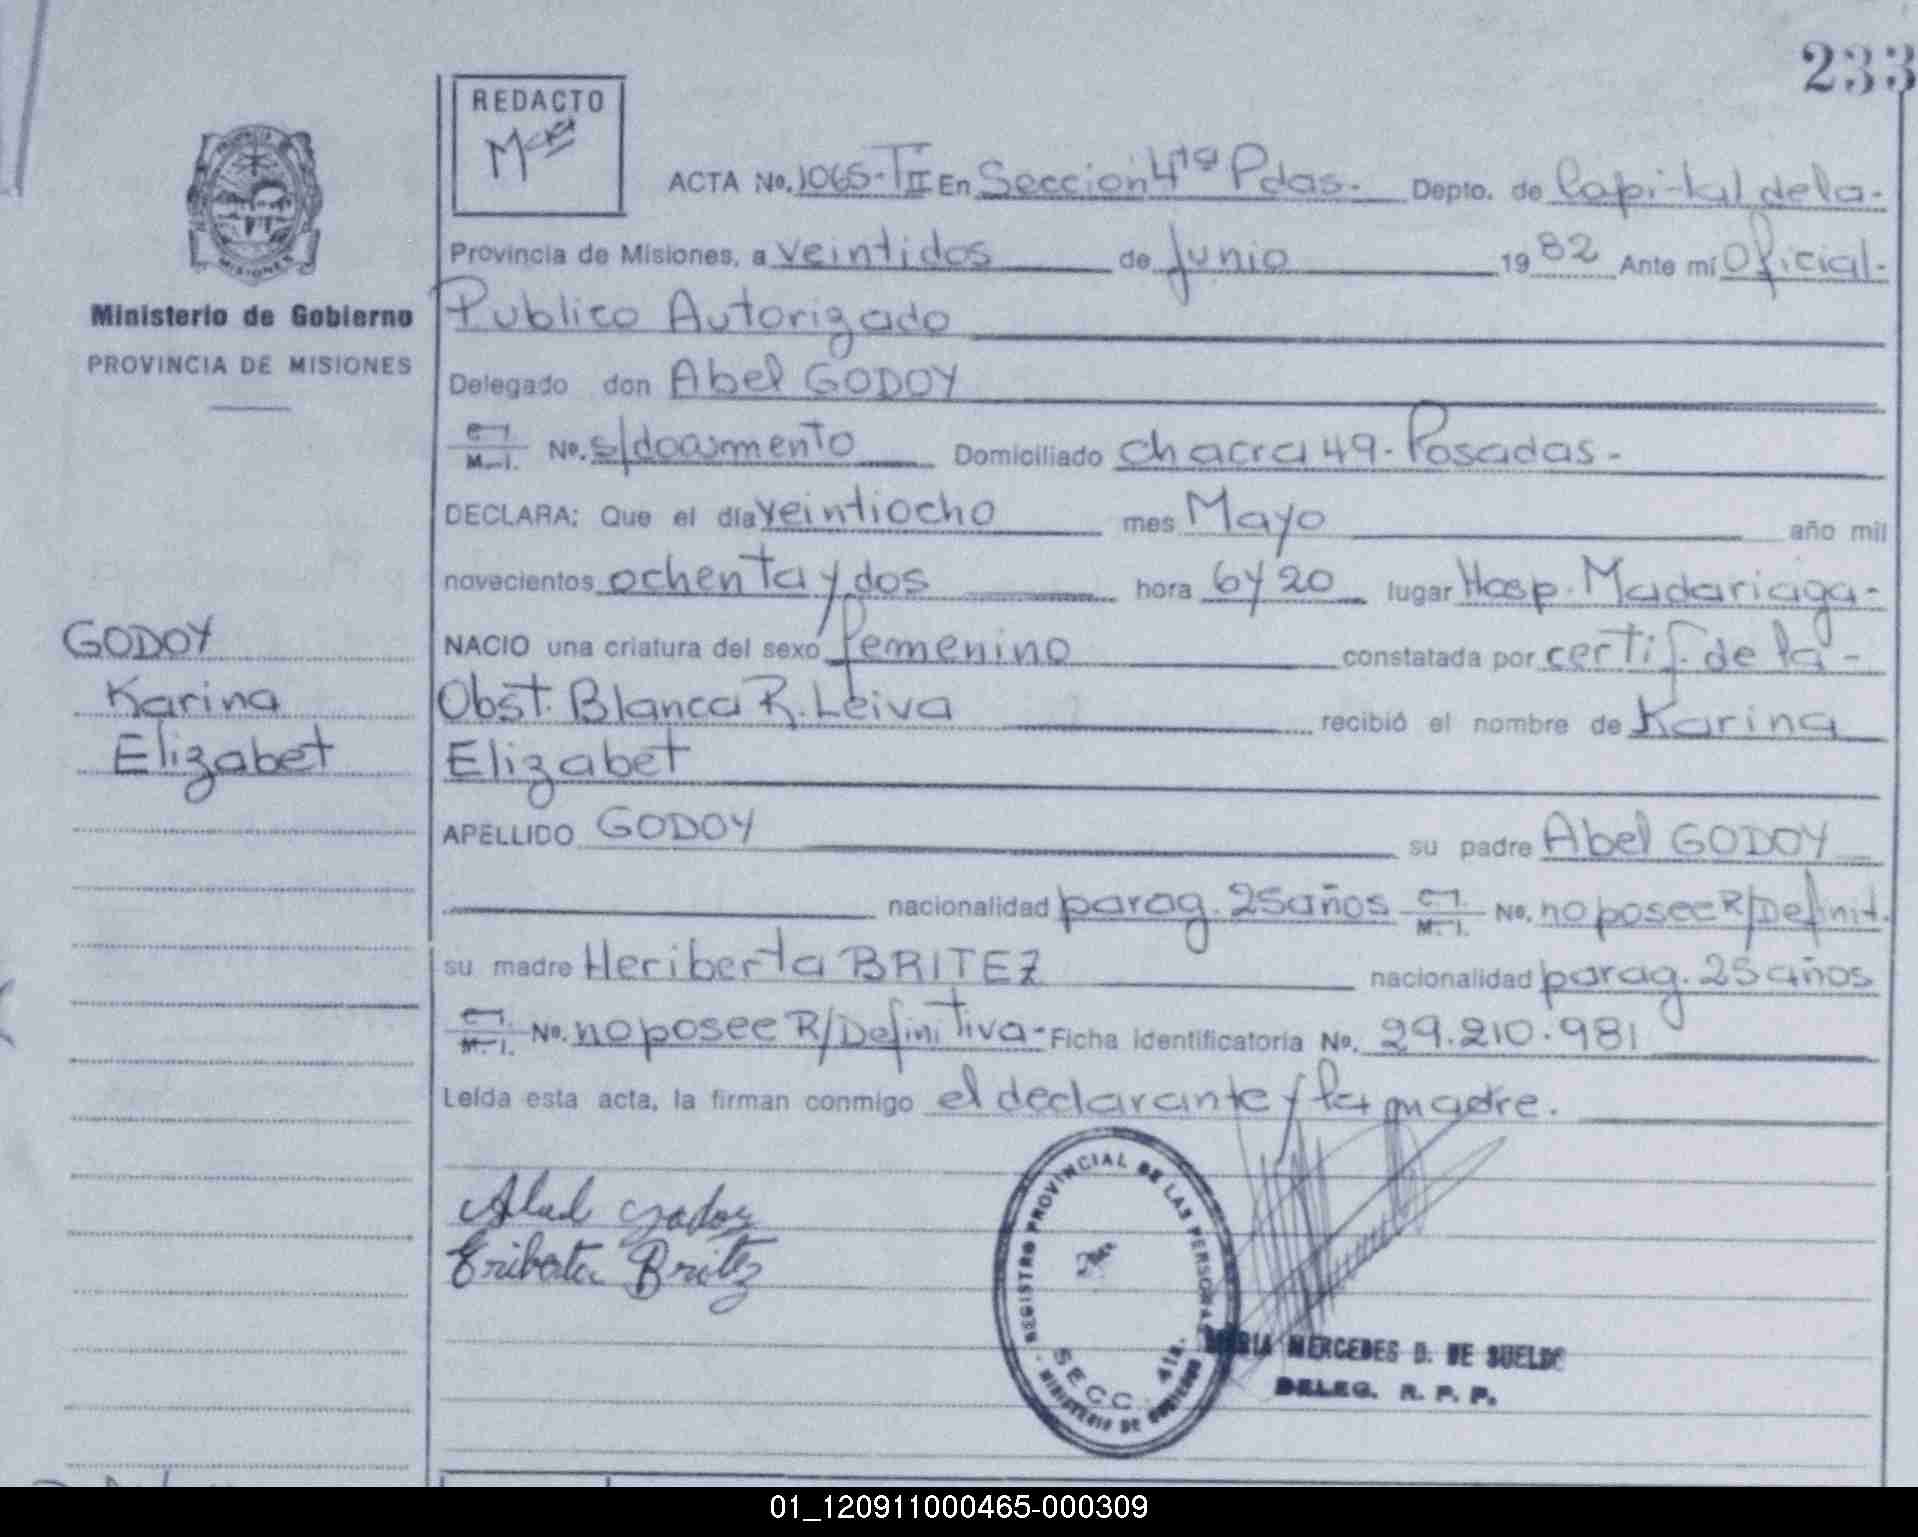 233
REDACTO
ACTA No. 1065-TII En Sección 4ta Pdas. Depto. de Capital de la-
Provincia de Misiones, a veintidos de Junio 1982 Ante mí Oficial-
Ministerio de Gobierno
PROVINCIA DE MISIONES
MISIONES
Publico Autorizado
Delegado don Abel GODOY
C.I. M.I. No. s/documento Domiciliado chacra 49-Posadas-
DECLARA: Que el día veintiocho mes Mayo año mil
novecientos ochenta y dos hora 6y20 lugar Hosp. Madariaga-
NACIO una criatura del sexo femenino constatada por certif. de la-
Obst. Blanca R. Leiva recibió el nombre de Karina
Elizabet
GODOY
Karina
Elizabet
APELLIDO GODOY su padre Abel GODOY
nacionalidad parag. 25años C.I. M.I. No. no posee R/Definit.
su madre Heriberta BRITEZ nacionalidad parag. 25 años
C.I. M.I. No. no posee R/Definitiva- Ficha identificatoria No. 29.210.981
Leída esta acta, la firman conmigo el declarante y la madre.
Eriberta Britez
REGISTRO PROVINCIAL DE LAS PERSONAS
SECC. 4ta.
MINISTERIO DE GOBIERNO
MARIA MERCEDES D. DE SUELDO
DELEG. R. P. P.
01_120911000465-000309